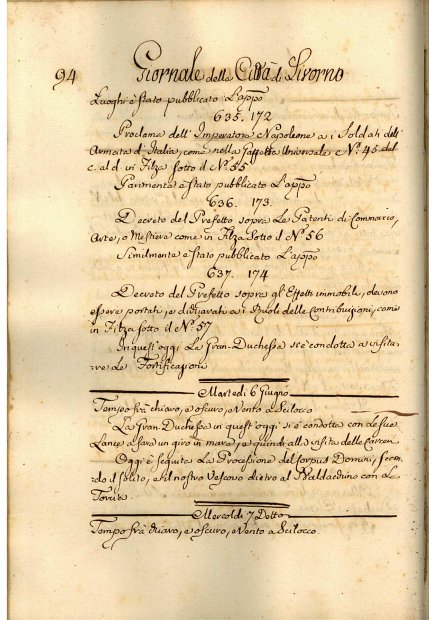 94 Giornale della Città di Livorno
Luoghi è stato pubblicato L'appo
635. 172
Proclama dell' Imperatore Napoleone a i Soldati dell'
Armata d'Italia, come nella Gazzetta Universale N.º 45 del
c. al d. in Filza sotto il Nº 55
Parimente è stato pubblicato L'appo
636. 173.
Decreto del Prefetto sopra Le Patenti di Commercio,
Arte, o Mestiere come in Filza sotto il Nº 56
Similmente è stato pubblicato L'appo
637. 174
Decreto del Prefetto sopra gl'Effetti immobili, devono
essere portati, e a i Ruoli delle Contribuzioni, come
in Filza sotto il Nº 57
In quest'oggi La Gran-Duchessa si è condotta a visita-
re Le Fortificazioni
Martedì 6 Giugno
Tempo frà chiaro, e oscuro, e Vento a Scilocco
La Gran-Duchessa in quest'oggi si è condotta con le sue
Lance a fare un giro in mare, e quindi alla visita delle Carceri
Oggi è seguita La Processione del Corpus Domini, secon-
do il solito, e il nostro Vescovo dietro al Baldacchino con Le
Torcia
Mercoldì 7 Detto
Tempo frà chiaro, e oscuro, e Vento a Scilocco